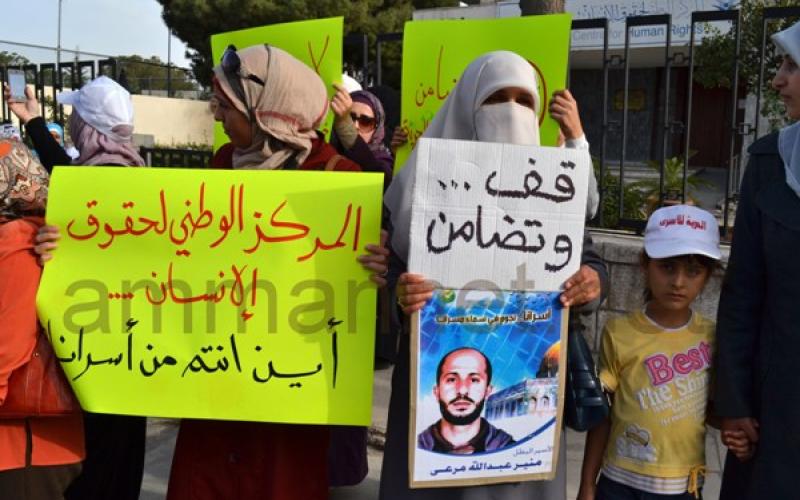 Centre for Human Rights
تضامن
المركز الوطني لحقوق
الإنسان ...
أين انتم من أسرانا
قف ...
وتضامن
أسرانا نجوم في سماء مسرانا
الأسير البطل
منير عبدالله مرعى
الحرية للأسرى
BEST
ammannet